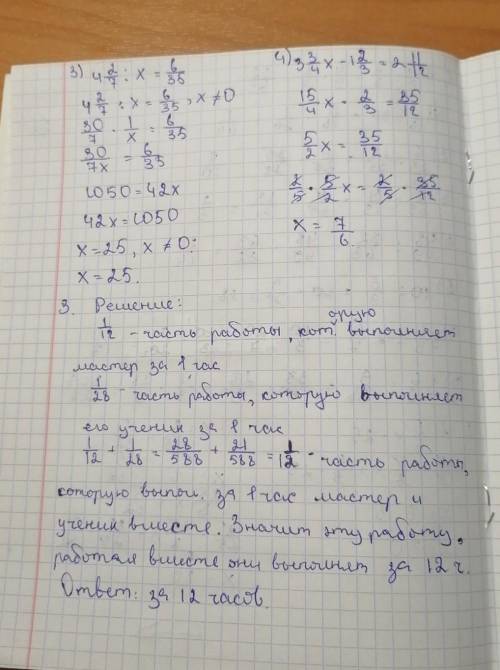 3) 4 2/7 : x = 6/35
4 2/7 : x = 6/35, x ≠ 0
30/7 · 1/x = 6/35
30/7x = 6/35
1050 = 42x
42x = 1050
x = 25, x ≠ 0.
x = 25.
4) 3 3/4 x - 1 2/3 = 2 11/12
15/4 x · 2/3 = 35/12
5/2 x = 35/12
2/5 · 5/2 x = 2/5 · 35/12
x = 7/6
3. Решение:
1/12 - часть работы, кот. орую выполняет
мастер за 1 час
1/28 - часть работы, которую выполняет
его ученик за 1 час
1/12 + 1/28 = 28/588 + 21/588 = 1/12 - часть работы,
которую выпол. за 1 час мастер и
ученик вместе. Значит эту работу,
работая вместе они выполнят за 12 ч.
Ответ: за 12 часов.